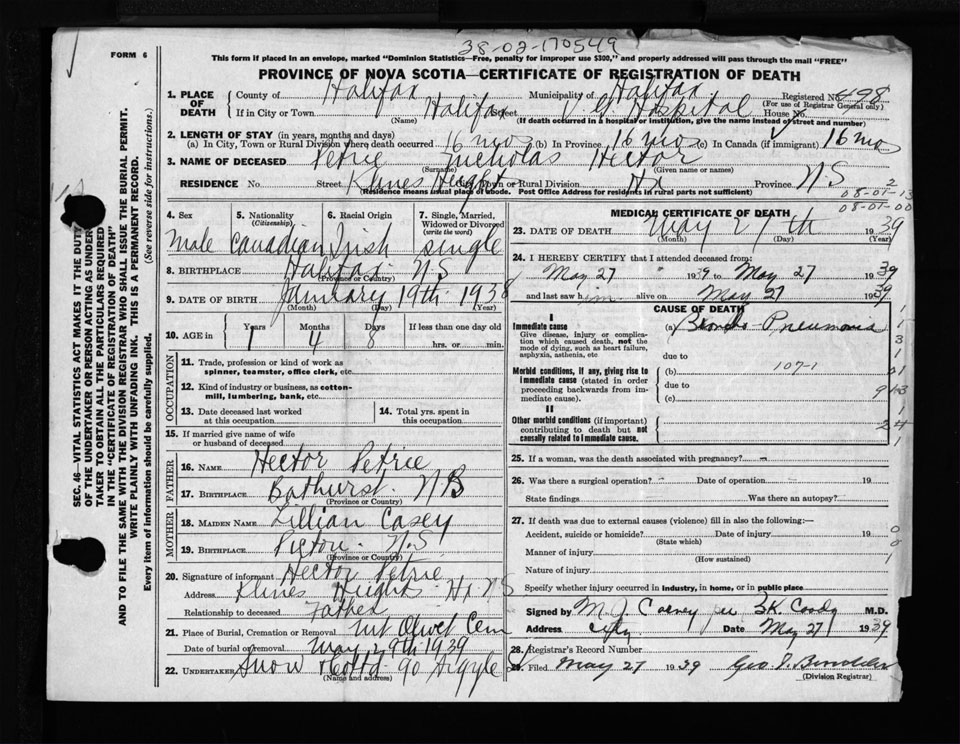 38-02-170549
FORM 6
This form if placed in an envelope, marked "Dominion Statistics—Free, penalty for improper use $300," and properly addressed will pass through the mail "FREE"
PROVINCE OF NOVA SCOTIA—CERTIFICATE OF REGISTRATION OF DEATH
1. PLACE OF DEATH
County of Halifax Municipality of Halifax Registered No. 498
(For use of Registrar General only)
If in City or Town Halifax Street V. G. Hospital House No.
(Name) (If death occurred in a hospital or institution, give the name instead of street and number)
2. LENGTH OF STAY (in years, months and days)
(a) In City, Town or Rural Division where death occurred 16 mos (b) In Province 16 mos (c) In Canada (if immigrant) 16 mo
3. NAME OF DECEASED Petrie Nicholas Hector
(Surname) (Given name or names)
RESIDENCE No. Street Klines Height City, Town or Rural Division Hx Province N S
(Residence means usual place of abode. Post Office Address for residents in rural parts not sufficient)
2
08-01-13
08-01-00
SEC. 46—VITAL STATISTICS ACT MAKES IT THE DUTY
OF THE UNDERTAKER OR PERSON ACTING AS UNDER-
TAKER TO OBTAIN ALL THE PARTICULARS REQUIRED
IN THE "CERTIFICATE OF REGISTRATION OF DEATH"
AND TO FILE THE SAME WITH THE DIVISION REGISTRAR WHO SHALL ISSUE THE BURIAL PERMIT.
WRITE PLAINLY WITH UNFADING INK. THIS IS A PERMANENT RECORD.
Every item of information should be carefully supplied. (See reverse side for instructions.)
4. Sex 5. Nationality (Citizenship) 6. Racial Origin 7. Single, Married, Widowed or Divorced (write the word)
Male Canadian Irish Single
8. BIRTHPLACE Halifax N S
(Province or Country)
9. DATE OF BIRTH January 19th 1938
(Month) (Day) (Year)
10. AGE in Years Months Days If less than one day old
1 4 8 hrs. or min.
OCCUPATION
11. Trade, profession or kind of work as
spinner, teamster, office clerk, etc.
12. Kind of industry or business, as cotton-
mill, lumbering, bank, etc.
13. Date deceased last worked at this occupation 14. Total yrs. spent in this occupation
15. If married give name of wife
or husband of deceased
FATHER
16. NAME Hector Petrie
17. BIRTHPLACE Bathurst N B
(Province or Country)
MOTHER
18. MAIDEN NAME Lillian Casey
19. BIRTHPLACE Pictou N.S
(Province or Country)
20. Signature of informant Hector Petrie
Address Klines Heights Hx N S
Relationship to deceased Father
21. Place of Burial, Cremation or Removal Mt Olivet Cem
Date of burial or removal May 29th 1939
22. UNDERTAKER Snow & Co Ltd 90 Argyle
(Name and address)
MEDICAL CERTIFICATE OF DEATH
23. DATE OF DEATH May 27th 1939
(Month) (Day) (Year)
24. I HEREBY CERTIFY that I attended deceased from:
May 27 1939 to May 27 1939
and last saw him alive on May 27 1939
CAUSE OF DEATH
I
Immediate cause (a) Broncho-Pneumonia
Give disease, injury or complica-
tion which caused death, not the
mode of dying, such as heart failure,
asphyxia, asthenia, etc due to
Morbid conditions, if any, giving rise to (b) 107-1
immediate cause (stated in order due to
proceeding backwards from im-
mediate cause). (c)
II
Other morbid conditions (if important)
contributing to death but not
causally related to immediate cause.
25. If a woman, was the death associated with pregnancy? -
26. Was there a surgical operation? - Date of operation 19
State findings Was there an autopsy?
27. If death was due to external causes (violence) fill in also the following:—
Accident, suicide or homicide? Date of injury 19
(State which)
Manner of injury
(How sustained)
Nature of injury
Specify whether injury occurred in industry, in home, or in public place
Signed by M. J. M.D.
Address City Date May 27 1939
28. Registrar's Record Number
29. Filed May 27 1939 Geo. D.
(Division Registrar)